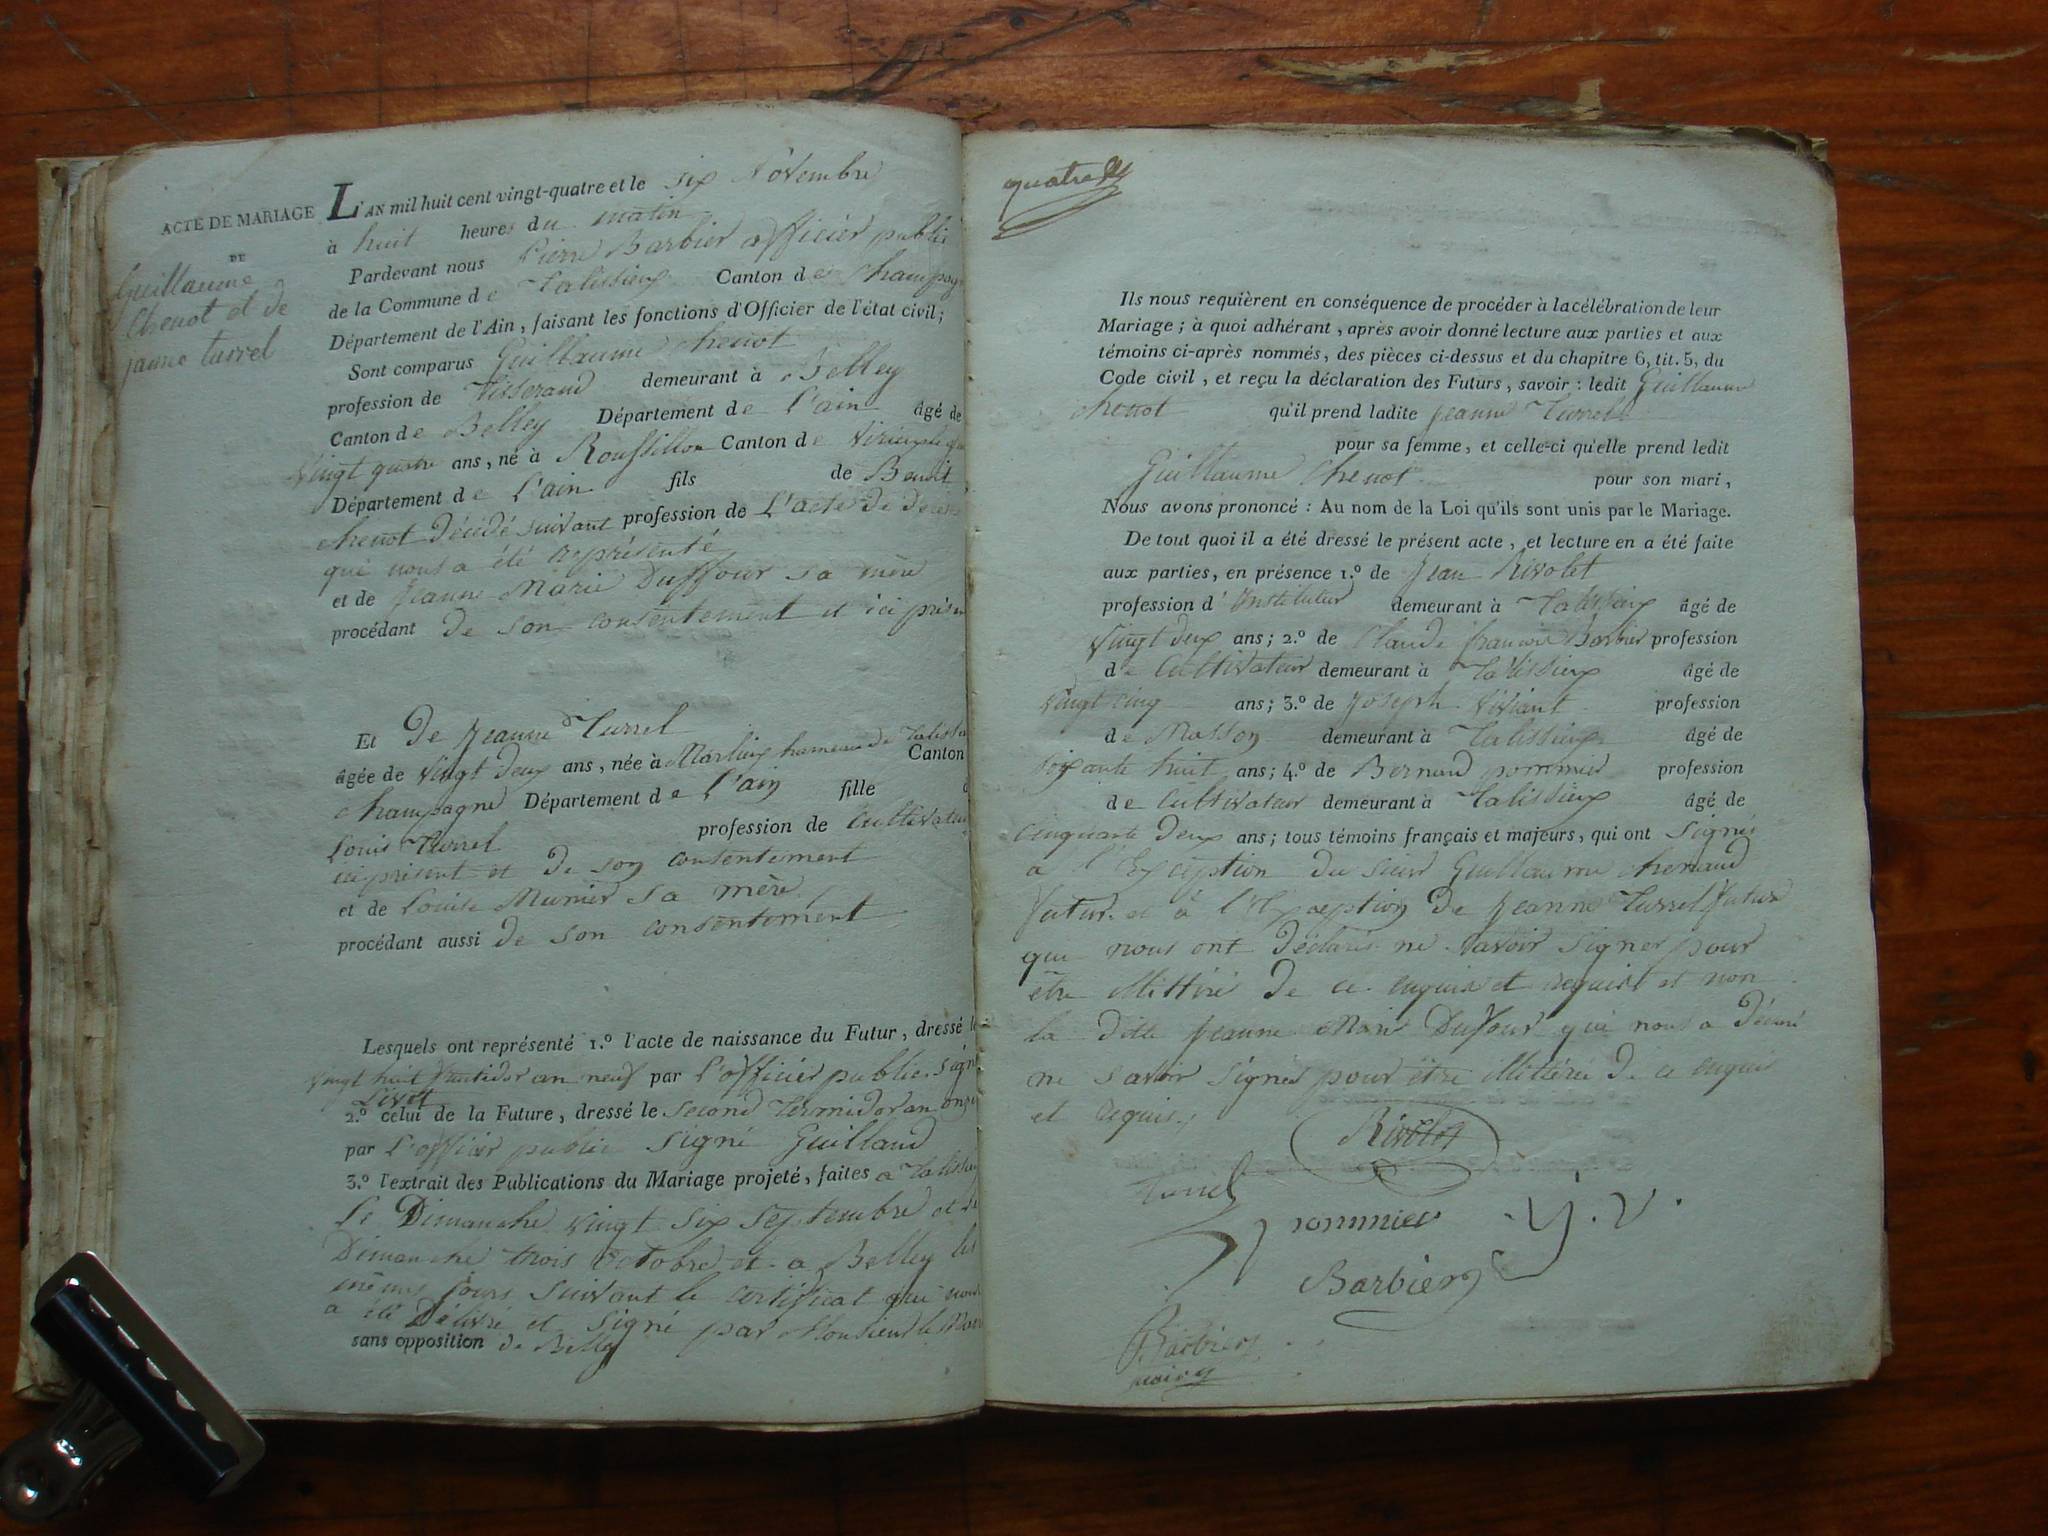 ACTE DE MARIAGE
DE
Guillaume
Chenot et de
jeanne turrel
L'AN mil huit cent vingt-quatre et le six Novembre
à huit heures du matin
Pardevant nous Pierre Barbier officier public
de la Commune de Talissieux Canton de Champag
Département de l'Ain, faisant les fonctions d'Officier de l'état civil;
Sont comparus Guillaume chenot
profession de Tisserand demeurant à Belley
Canton de Belley Département de l'ain âgé de
vingt quatre ans, né à Roussillon Canton de
Département de l'ain fils de Benoit
chenot Décédé suivant profession de L'acte De Décès
qui nous a été représenté
et de Jeanne Marie Duffour sa mère
procédant de son consentement et ici présen
Et De Jeanne Turrel
âgée de vingt Deux ans, née à Marlieux hameau de Taliss Canton
champagne Département de l'ain fille d
Louis Turrel profession de Cultivateu
ici présent et De son consentement
et de Louise Munier sa mère
procédant aussi de son consentement
Lesquels ont représenté 1.º l'acte de naissance du Futur, dressé le
vingt huit fructidor an neuf par l'officier public signé
2.º celui de la Future, dressé le second Termidor an onze
par l'officier public signé Guilland
3.º l'extrait des Publications du Mariage projeté, faites a Talissieu
Le Dimanche vingt six septembre et le
Dimanche trois octobre et a Belley les
mêmes jours suivant le certificat qui nous
a été Délivré et signé par Monsieur le Mair
sans opposition de Belley
quatre
Ils nous requièrent en conséquence de procéder à la célébration de leur
Mariage; à quoi adhérant, après avoir donné lecture aux parties et aux
témoins ci-après nommés, des pièces ci-dessus et du chapitre 6, tit. 5, du
Code civil, et reçu la déclaration des Futurs, savoir: ledit Guillaume
chenot qu'il prend ladite Jeanne Turrel
pour sa femme, et celle-ci qu'elle prend ledit
Guillaume Chenot pour son mari,
Nous avons prononcé: Au nom de la Loi qu'ils sont unis par le Mariage.
De tout quoi il a été dressé le présent acte, et lecture en a été faite
aux parties, en présence 1.º de Jean Rivolet
profession d'Instituteur demeurant à Talissieux âgé de
vingt deux ans; 2.º de Claude françois Barbier profession
de Cultivateur demeurant à Talissieux âgé de
vingt cinq ans; 3.º de Joseph Viviant profession
de Masson demeurant à Talissieux âgé de
soixante huit ans; 4.º de Bernard pommier profession
de Cultivateur demeurant à Talissieux âgé de
cinquante Deux ans; tous témoins français et majeurs, qui ont signés
a l'Exception du sieur Guillaume chenaud
futur et à l'Exception De Jeanne Turrel future
qui nous ont Déclarés ne savoir signer pour
être illittiré De ce enquis et requist et non
la ditte Jeanne Marie Dufour qui nous a Déclaré
ne savoir signer pour être illittérée De ce enquis
et requis.
Rivolet
Turrel
pommier J. V.
Barbier
Barbier
maire